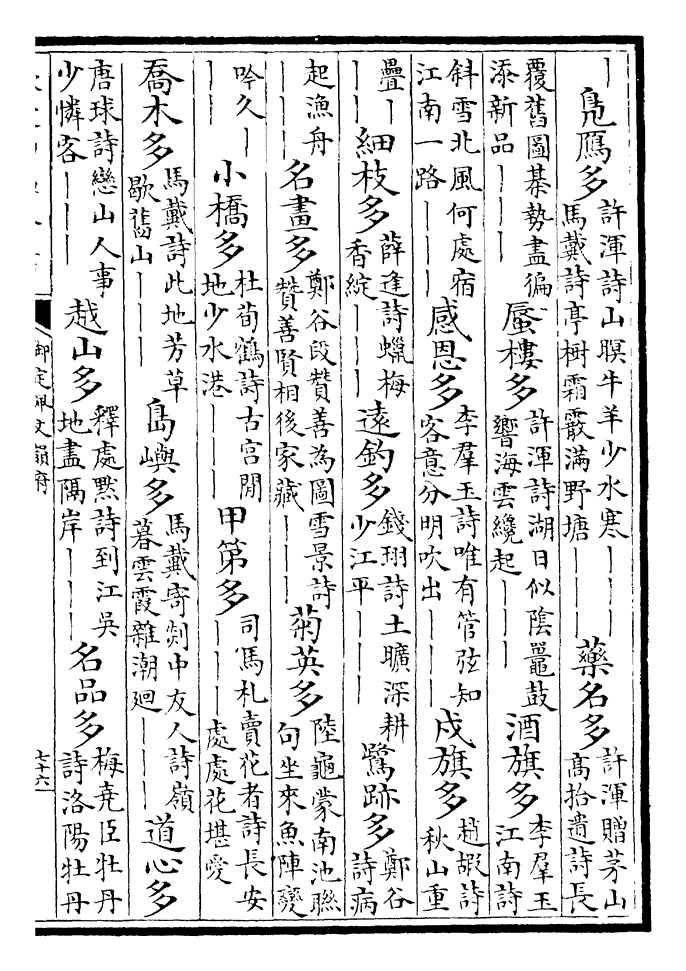 ｜鳧鴈多許渾詩山暝牛羊少水寒｜｜｜馬戴詩亭樹霜霰滿野塘｜｜｜藥名多許渾贈茅山高拾遺詩長
覆舊圖棊勢盡徧添新品｜｜｜蜃樓多許渾詩湖日似陰鼉鼓響海雲纔起｜｜｜酒旗多李羣玉江南詩
斜雪北風何處宿江南一路｜｜｜感恩多李羣玉詩唯有管弦知客意分明吹出｜｜｜戍旗多趙嘏詩秋山重
疊｜｜｜細枝多薛逢詩蠟梅香綻｜｜｜遠釣多錢珝詩土曠深耕少江平｜｜｜鷺跡多鄭谷詩病
起漁舟｜｜｜名畫多鄭谷段贊善為圖雪景詩贊善賢相後家藏｜｜｜菊英多陸龜蒙南池聯句坐來魚陣變
吟久｜｜｜小橋多杜荀鶴詩古宮閒地少水港｜｜｜甲第多司馬札賣花者詩長安｜｜｜處處花堪愛
喬木多馬戴詩此地芳草歇舊山｜｜｜島嶼多馬戴寄剡中友人詩嶺暮雲霞雜潮廻｜｜｜道心多
唐球詩戀山人事少憐客｜｜｜越山多釋處默詩到江吳地盡隔岸｜｜｜名品多梅堯臣牡丹詩洛陽牡丹
御定佩文韻府
七十六